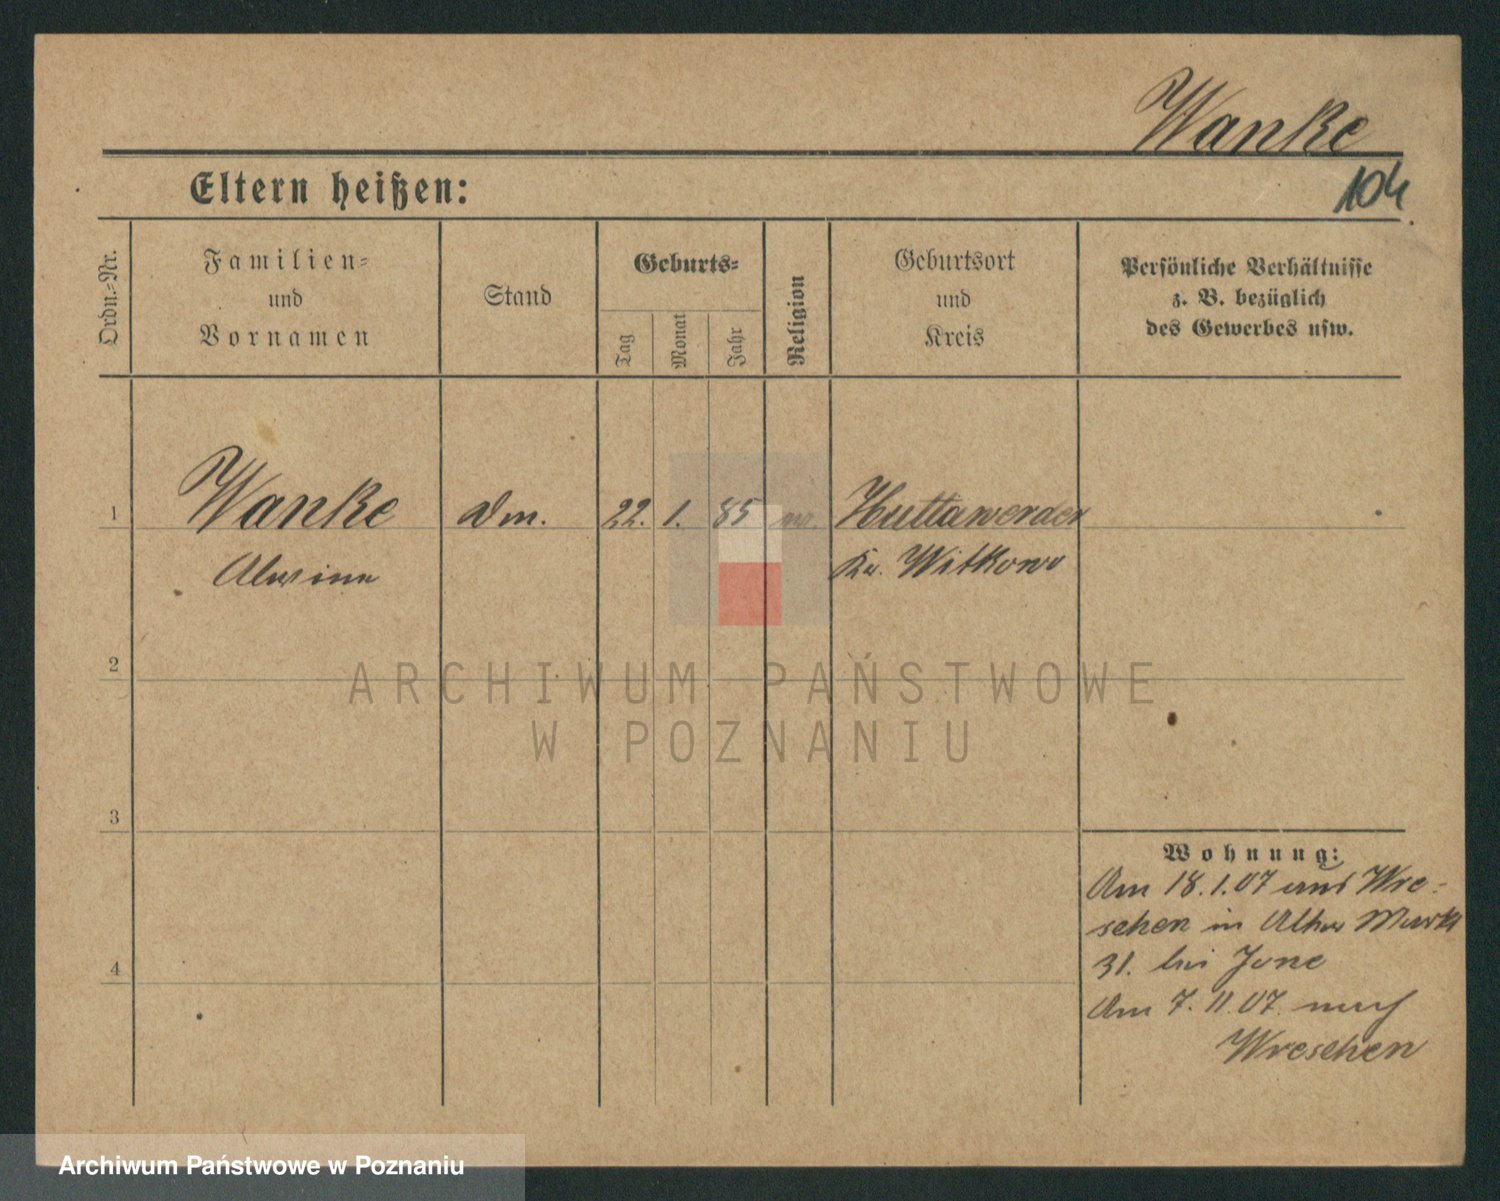 Wanke
104
Eltern heißen:
Ordn.-Nr.
Familien-
und
Vornamen
Stand
Geburts-
Tag
Monat
Jahr
Religion
Geburtsort
und
Kreis
Persönliche Verhältnisse
z. B. bezüglich
des Gewerbes usw.
1
Wanke
22. 1. 85
Huttawerder
Alwine
Kr. Witkowo
2
ARCHIWUM PAŃSTWOWE
W POZNANIU
3
Wohnung:
Am 18.1.07 aus Wre-
schen in Alter Markt
31. bei
4
Am 7.11.07. nach
Wreschen
Archiwum Państwowe w Poznaniu